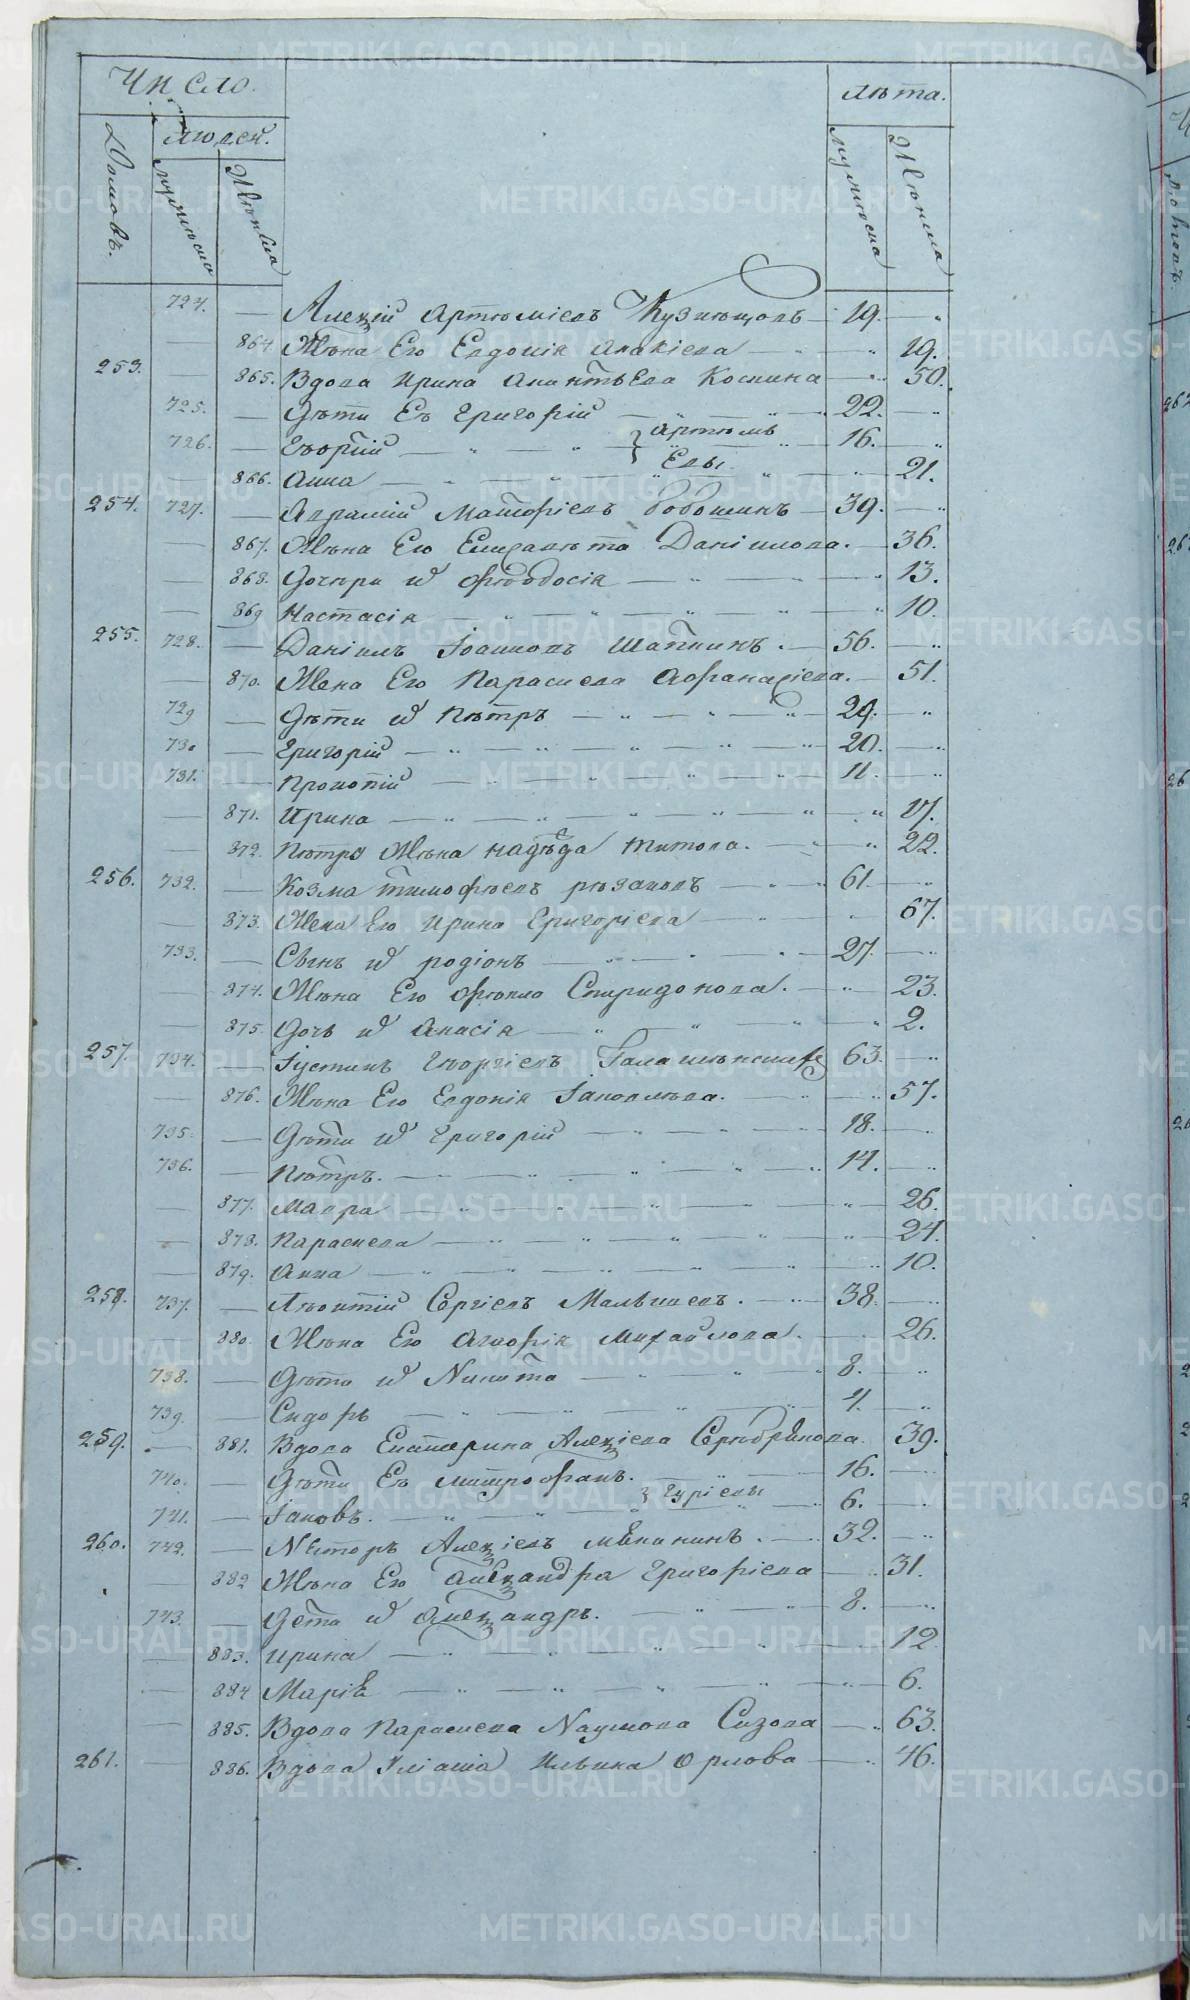 Число.
Лѣта.
Домовъ.
людей.
мужеска
Женска
мужеска
Женска
724. — Алексій Артемьевъ Кузнецовъ — 19. — „
— 864 Жена Его Евдокія Акакіева — „ — „ 19.
253. — 865. Вдова Ирина Акинтьева Коскина — „ 50.
725. — Дѣти Еѣ Григорій — „ — „ 22. — „
Артемь
726. — Георгій — „ — „ 16. — „
Евы.
— 866. Анна — „ — „ 21.
254. 727. — Аврамій Матфеевъ Бобошинъ — 39. — „
— 867. Жена Его Елизавета Даніилова. — 36.
— 868. Дочери и Феодосія — „ — „ 13.
— 869 Настасія — „ — „ 10.
255. 728. — Даніилъ Іоанновъ Шапкинъ. — 56. — „
— 870. Жена Его Параскева Афанасіева. — 51.
729 — Дѣти и Петръ — „ — „ 29. — „
730 — Григорій — „ — „ 20. — „
731. — Прокопій — „ — „ 11. — „
— 871. Ирина — „ — „ 17.
— 872. Петра Жена Надежда Титова. — „ 22.
256. 732. — Козма Тимофеевъ Резановъ — „ 61 — „
— 873. Жена Его Ирина Григоріева — „ 67.
733. — Сынъ и Родіонъ — „ — „ 27. — „
— 874. Жена Его Фекла Спиридонова. — „ 23.
— 875. Дочь и Анасія — „ — „ 2.
257. 734. — Іустинъ Георгіевъ 63. — „
— 876. Жена Его Евдокія Іаковлева. — „ 57.
735. — Дѣти и Григорій — „ — „ 18. — „
736. — Петръ. — „ — „ 14. — „
— 877. Мавра — „ — „ 26.
— 878. Параскева — „ — „ 24.
— 879. Анна — „ — „ 10.
258. 737. — Леонтій Сергіевъ Мальцевъ. — „ 38. — „
— 880. Жена Его Агафія Михайлова. — „ 26.
738. — Дѣти и Никита — „ — „ 8. — „
739. — Сидоръ — „ — „ 4. — „
259. — 881. Вдова Екатерина Алексіева Серебрякова. 39.
740. — Дѣти Еѣ Митрофанъ. — „ 16. — „
Гуріевы
741. — Іаковъ. — „ — „ 6. — „
260. 742. — Несторъ Алексіевъ Мѣкинъ. — 32. — „
— 882 Жена Его Александра Григоріева — „ 31.
743. — Дети и Александръ. — „ — „ 8. — „
— 883. Ирина — „ — „ 12
— 884 Марія — „ — „ 6.
— 885. Вдова Параскева Наумова Сизова — „ 63.
261. — 886. Вдова Ильина Орлова — „ 46.